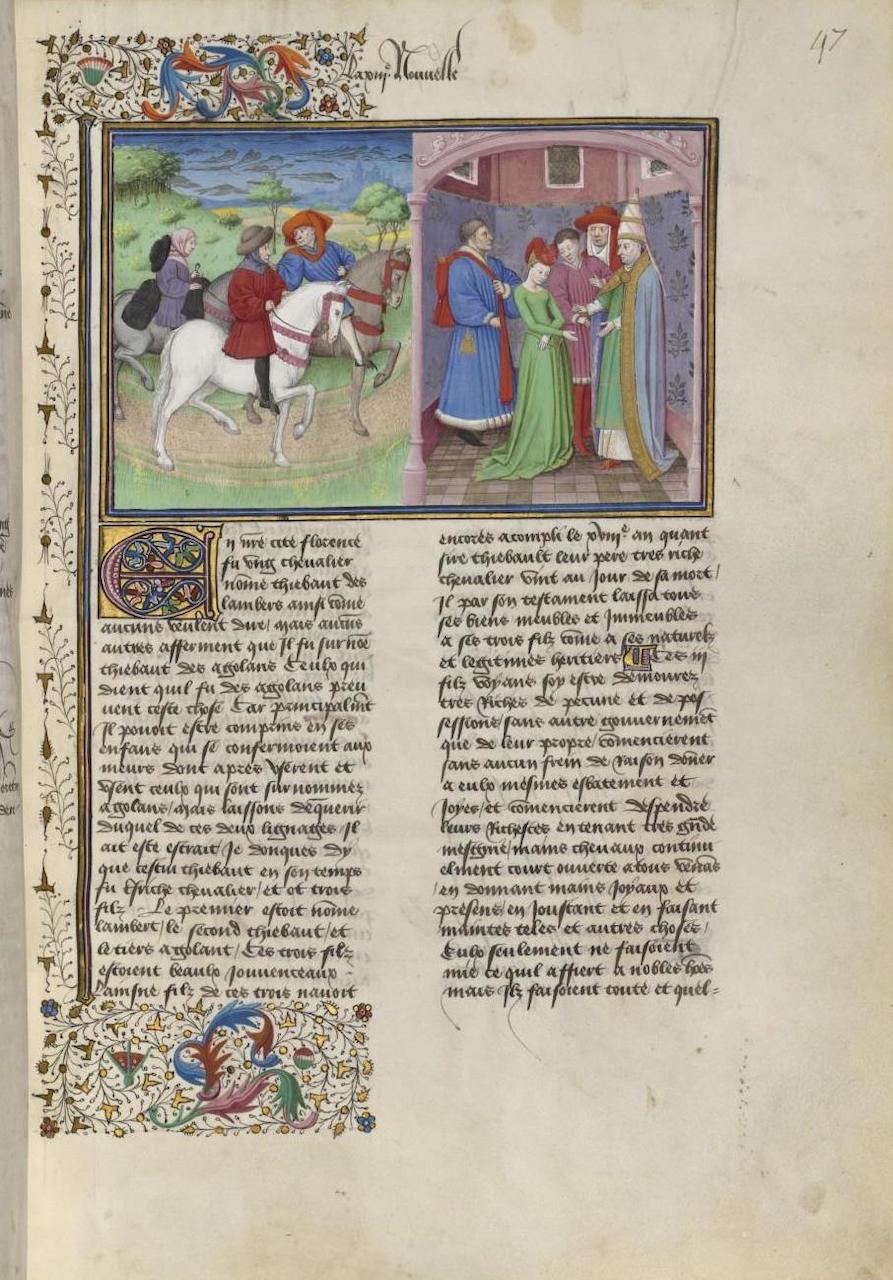 La xiij.e Nouuelle
47
En nr̄e cite florence
fu vng cheualier
nōme thiebaut des
lambers ainsi cōme
aucuns veulent dire / mais aucūs
autres afferment que Jl fu surnōe
thiebaut des agolans Ceulx qui
dient quil fu des agolans preu
uent ceste chose Car principalmt̄
Jl pouoit estre comprins en ses
enfans qui se confermoient aux
meurs dont apres vserent et
vsent ceulx qui sont surnommez
agolans / mais laissons dēquerir
duquel de ces deux lignages Jl
ait este estrait / Je donques dy
que cestui thiebaut en son temps
fu tsriche cheualier / et ot trois
filz Le premier estoit nōme
lambert / le second thiebaut / et
le tiers agolant / Ces trois filz
estoient beaulx Jouuenceaux
Lainsne filz de ces trois nauoit
encores acompli le xviije an quant
sire thiebault leur pere tres riche
cheualier vint au Jour de sa mort /
Jl par son testament laissa tous
ses biens meubles et Jmmeubles
a ses trois filz cōme a ses naturelz
et legitimes heritiers Ces iij
filz voyans soy estre demourez
tres Riches de pecune et de pos
sessions sans autre gouuernemēt
que de leur propre / cōmencierent
sans aucun frein de raison dōner
a eulx mesmes esbatement et
Joyes / et cōmencierent despendre
leurs Richesces en tenant tres grāde
mesgnie / mains cheuaux continu
elment court ouuerte a tous venās
/ en donnant mains Joyaux et
presens / en Joustant et en faisant
maintes teles et autres choses /
Eulx seulement ne faisoient
mie ce quil affiert a nobles hōes
mais Jlz faisoient toute et quel=